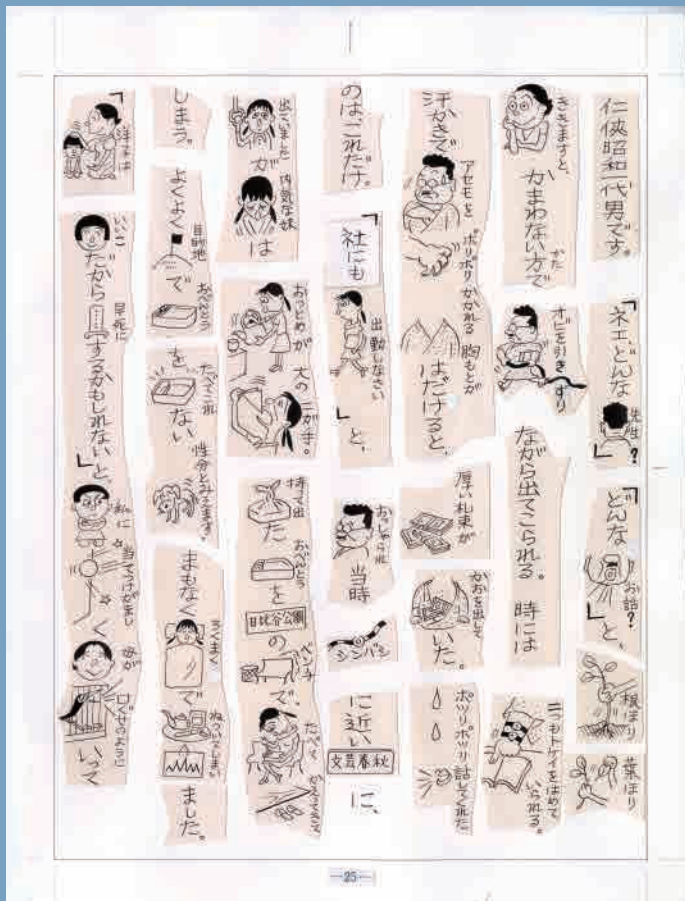 仁侠昭和一代男です。「ネエ、どんな先生?」「どんなお話?」と、根ほり葉ほり
ききますと、かまわない方かたでオビを引きずりながら出てこられる。時には二つもトケイをはめていられる。
汗かきでアセモをポリポリかかれる胸もとがはだけると、厚い札束がかおを出していた。ポツリポツリ話してくれた
のはこれだけ。「社にも出勤しなさい」と、おっしゃられ当時シンバシに近い文芸春秋に、
出ていましたが内気な妹はおつとめが大のニガ手。持って出たおべんとうを日比谷公園のベンチで、たべてかえってきて
しまう。よくよく目的地でおべんとうをたべてこれない性分とみえます。まもなくろくまくでねついてしまいました。
「洋子はいいこだから早死にするかもしれない」と、私に当てつけがましく母が口ぐせのようにいって
—25—